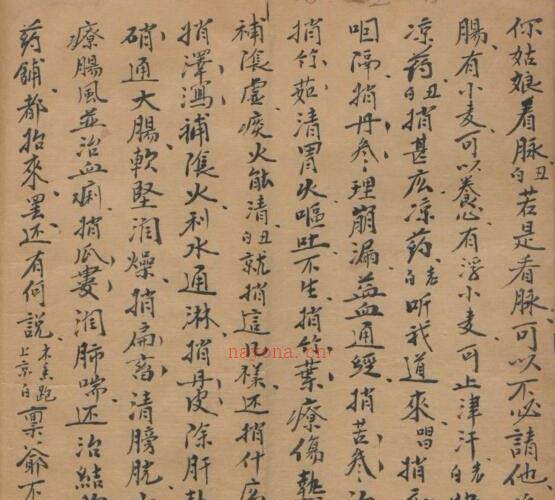 你姑娘看脉丑白若是看脉可以不必請他
腸有小麦可以養心有浮小麦可止津汗老白
凉药丑白捎甚庅凉药老白听我道來唱捎
咽隔捎丹参理崩漏益血通經捎苦参治
捎竹茹清胃火嘔吐不生捎竹葉療傷熱
補陰虚痰火能清丑白就捎這几樣还捎什庅
捎澤瀉補陰火利水通淋捎丹皮除肝熱
硝通大腸軟堅润燥捎扁畜清膀胱
療腸風並治血痢捎瓜蔞润肺喘还治結
药鋪都抬來罢还有何說末丑跑上京白禀爺不
nayona.cn